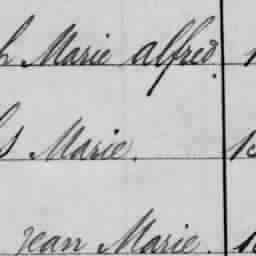 h Marie alfred.
s Marie.
jean Marie.